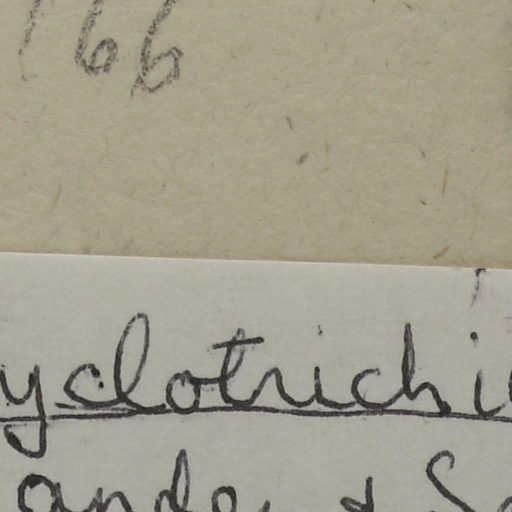 166
yclotrichi
ande & S